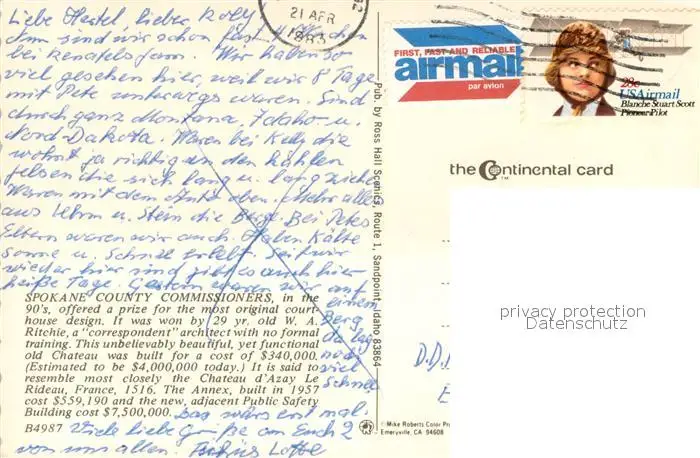 Liebe Hertel, lieber Rolf,
21 APR
1983
Nun sind wir schon fast 4 Wochen
bei Renate + Sam. Wir haben so
viel gesehen hier, weil wir 8 Tage
mit Pete unterwegs waren. Sind
durch ganz Montana, Idaho u.
Nord-Dakota. Waren bei Kelly die
wohnt ja richtig an den kahlen
felsen die sich lang u. lang ziehe
Waren mit dem Auto oben. alles
aus Lehm u. Stein die Berge. Bei Petes
Eltern waren wir auch. Haben Kälte
Sonne u. Schnee erlebt. Seit wir
wieder hier sind gibt es auch hier
heiße Tage. Gestern waren wir auf
einem
Berg
da lag
noch
viel
Schnee
Das wärs erst mal.
Viele liebe Grüße an Euch 2
von uns allen. Lotte
SPOKANE COUNTY COMMISSIONERS, in the
90's, offered a prize for the most original court-
house design. It was won by 29 yr. old W. A.
Ritchie, a "correspondent" architect with no formal
training. This unbelievably beautiful, yet functional
old Chateau was built for a cost of $340,000.
(Estimated to be $4,000,000 today.) It is said to
resemble most closely the Chateau d'Azay Le
Rideau, France, 1516. The Annex, built in 1957
cost $559,190 and the new, adjacent Public Safety
Building cost $7,500,000.
B4987
Pub. by Ross Hall Scenics, Route 1, Sandpoint, Idaho 83864
FIRST, FAST AND RELIABLE
airmail
par avion
28c
USAirmail
Blanche Stuart Scott
Pioneer Pilot
the Continental card
TM
privacy protection
Datenschutz
D.D.
E
© Mike Roberts Color Pr
Emeryville, CA 94608